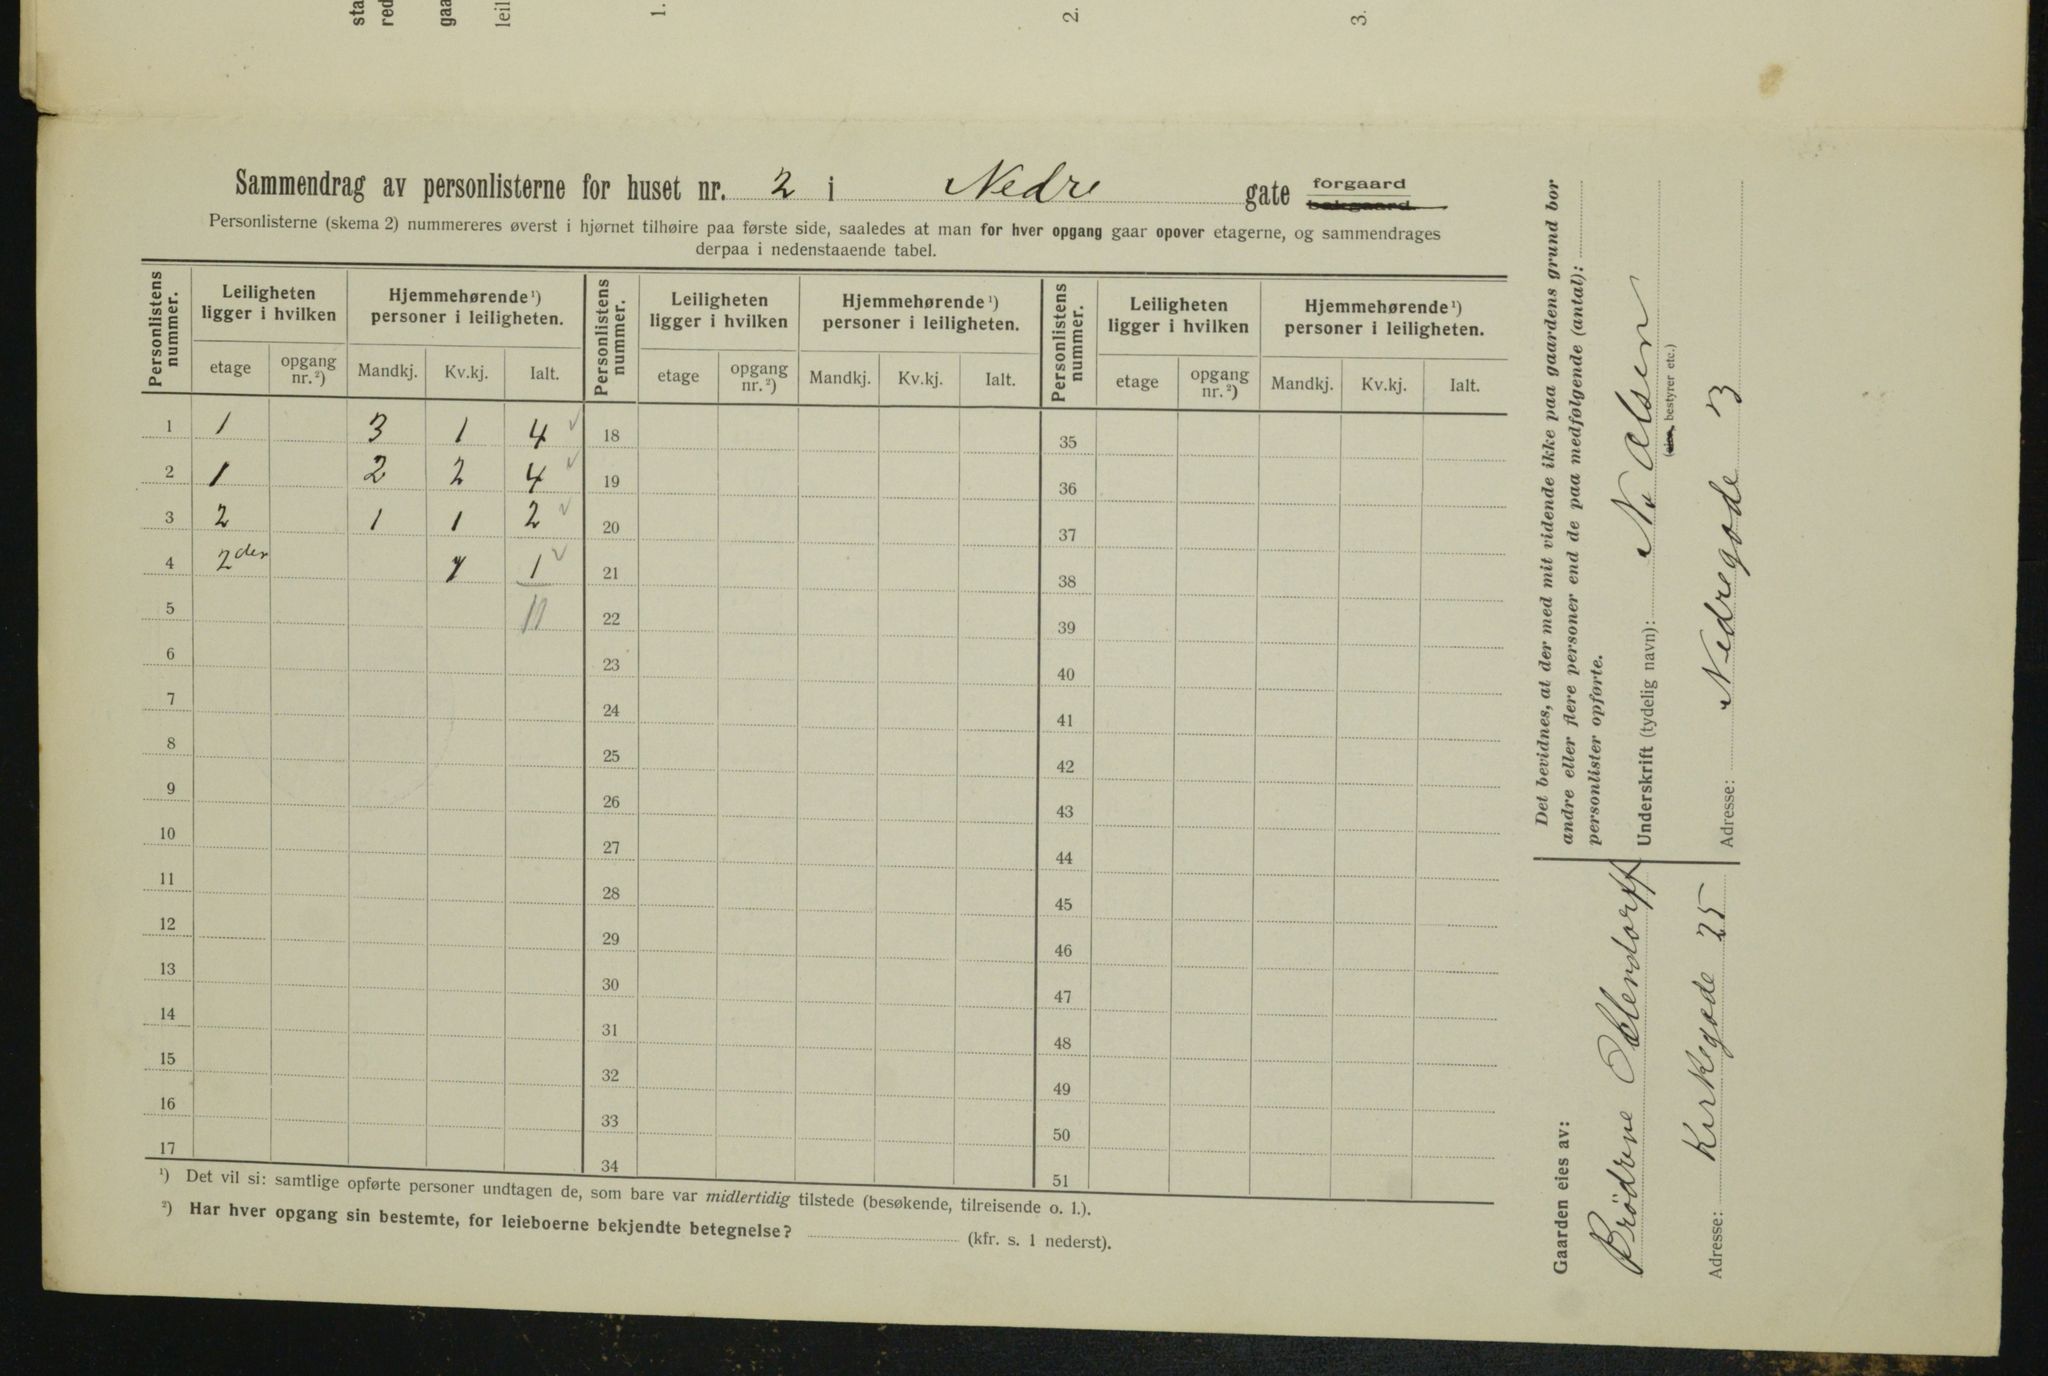 sta
red
gaa
leil
1.
2.
3.
Sammendrag av personlisterne for huset nr. 2 i Nedre gate forgaard bakgaard.
Personlisterne (skema 2) nummereres øverst i hjørnet tilhøire paa første side, saaledes at man for hver opgang gaar opover etagerne, og sammendrages
derpaa i nedenstaaende tabel.
Personlistens nummer. Leiligheten ligger i hvilken Hjemmehørende¹) personer i leiligheten. Personlistens nummer. Leiligheten ligger i hvilken Hjemmehørende¹) personer i leiligheten. Personlistens nummer. Leiligheten ligger i hvilken Hjemmehørende¹) personer i leiligheten.
etage opgang nr.²) Mandkj. Kv.kj. Ialt. etage opgang nr.²) Mandkj. Kv.kj. Ialt. etage opgang nr.²) Mandkj. Kv.kj. Ialt.
1 1 3 1 4 ✓ 18 35
2 1 2 2 4 ✓ 19 36
3 2 1 1 2 ✓ 20 37
4 2den 1 1 ✓ 21 38
5 11 22 39
6 23 40
7 24 41
8 25 42
9 26 43
10 27 44
11 28 45
12 29 46
13 30 47
14 31 48
15 32 49
16 33 50
17 34 51
¹) Det vil si: samtlige opførte personer undtagen de, som bare var midlertidig tilstede (besøkende, tilreisende o. l.).
²) Har hver opgang sin bestemte, for leieboerne bekjendte betegnelse? (kfr. s. 1 nederst).
Det bevidnes, at der med mit vidende ikke paa gaardens grund bor
andre eller flere personer end de paa medfølgende (antal):
personlister opførte.
Underskrift (tydelig navn): N. Olsen
bestyrer etc.)
Adresse: Nedregade 3
Gaarden eies av:
Brödrene Oblendorff
Adresse: Kirkegade 25